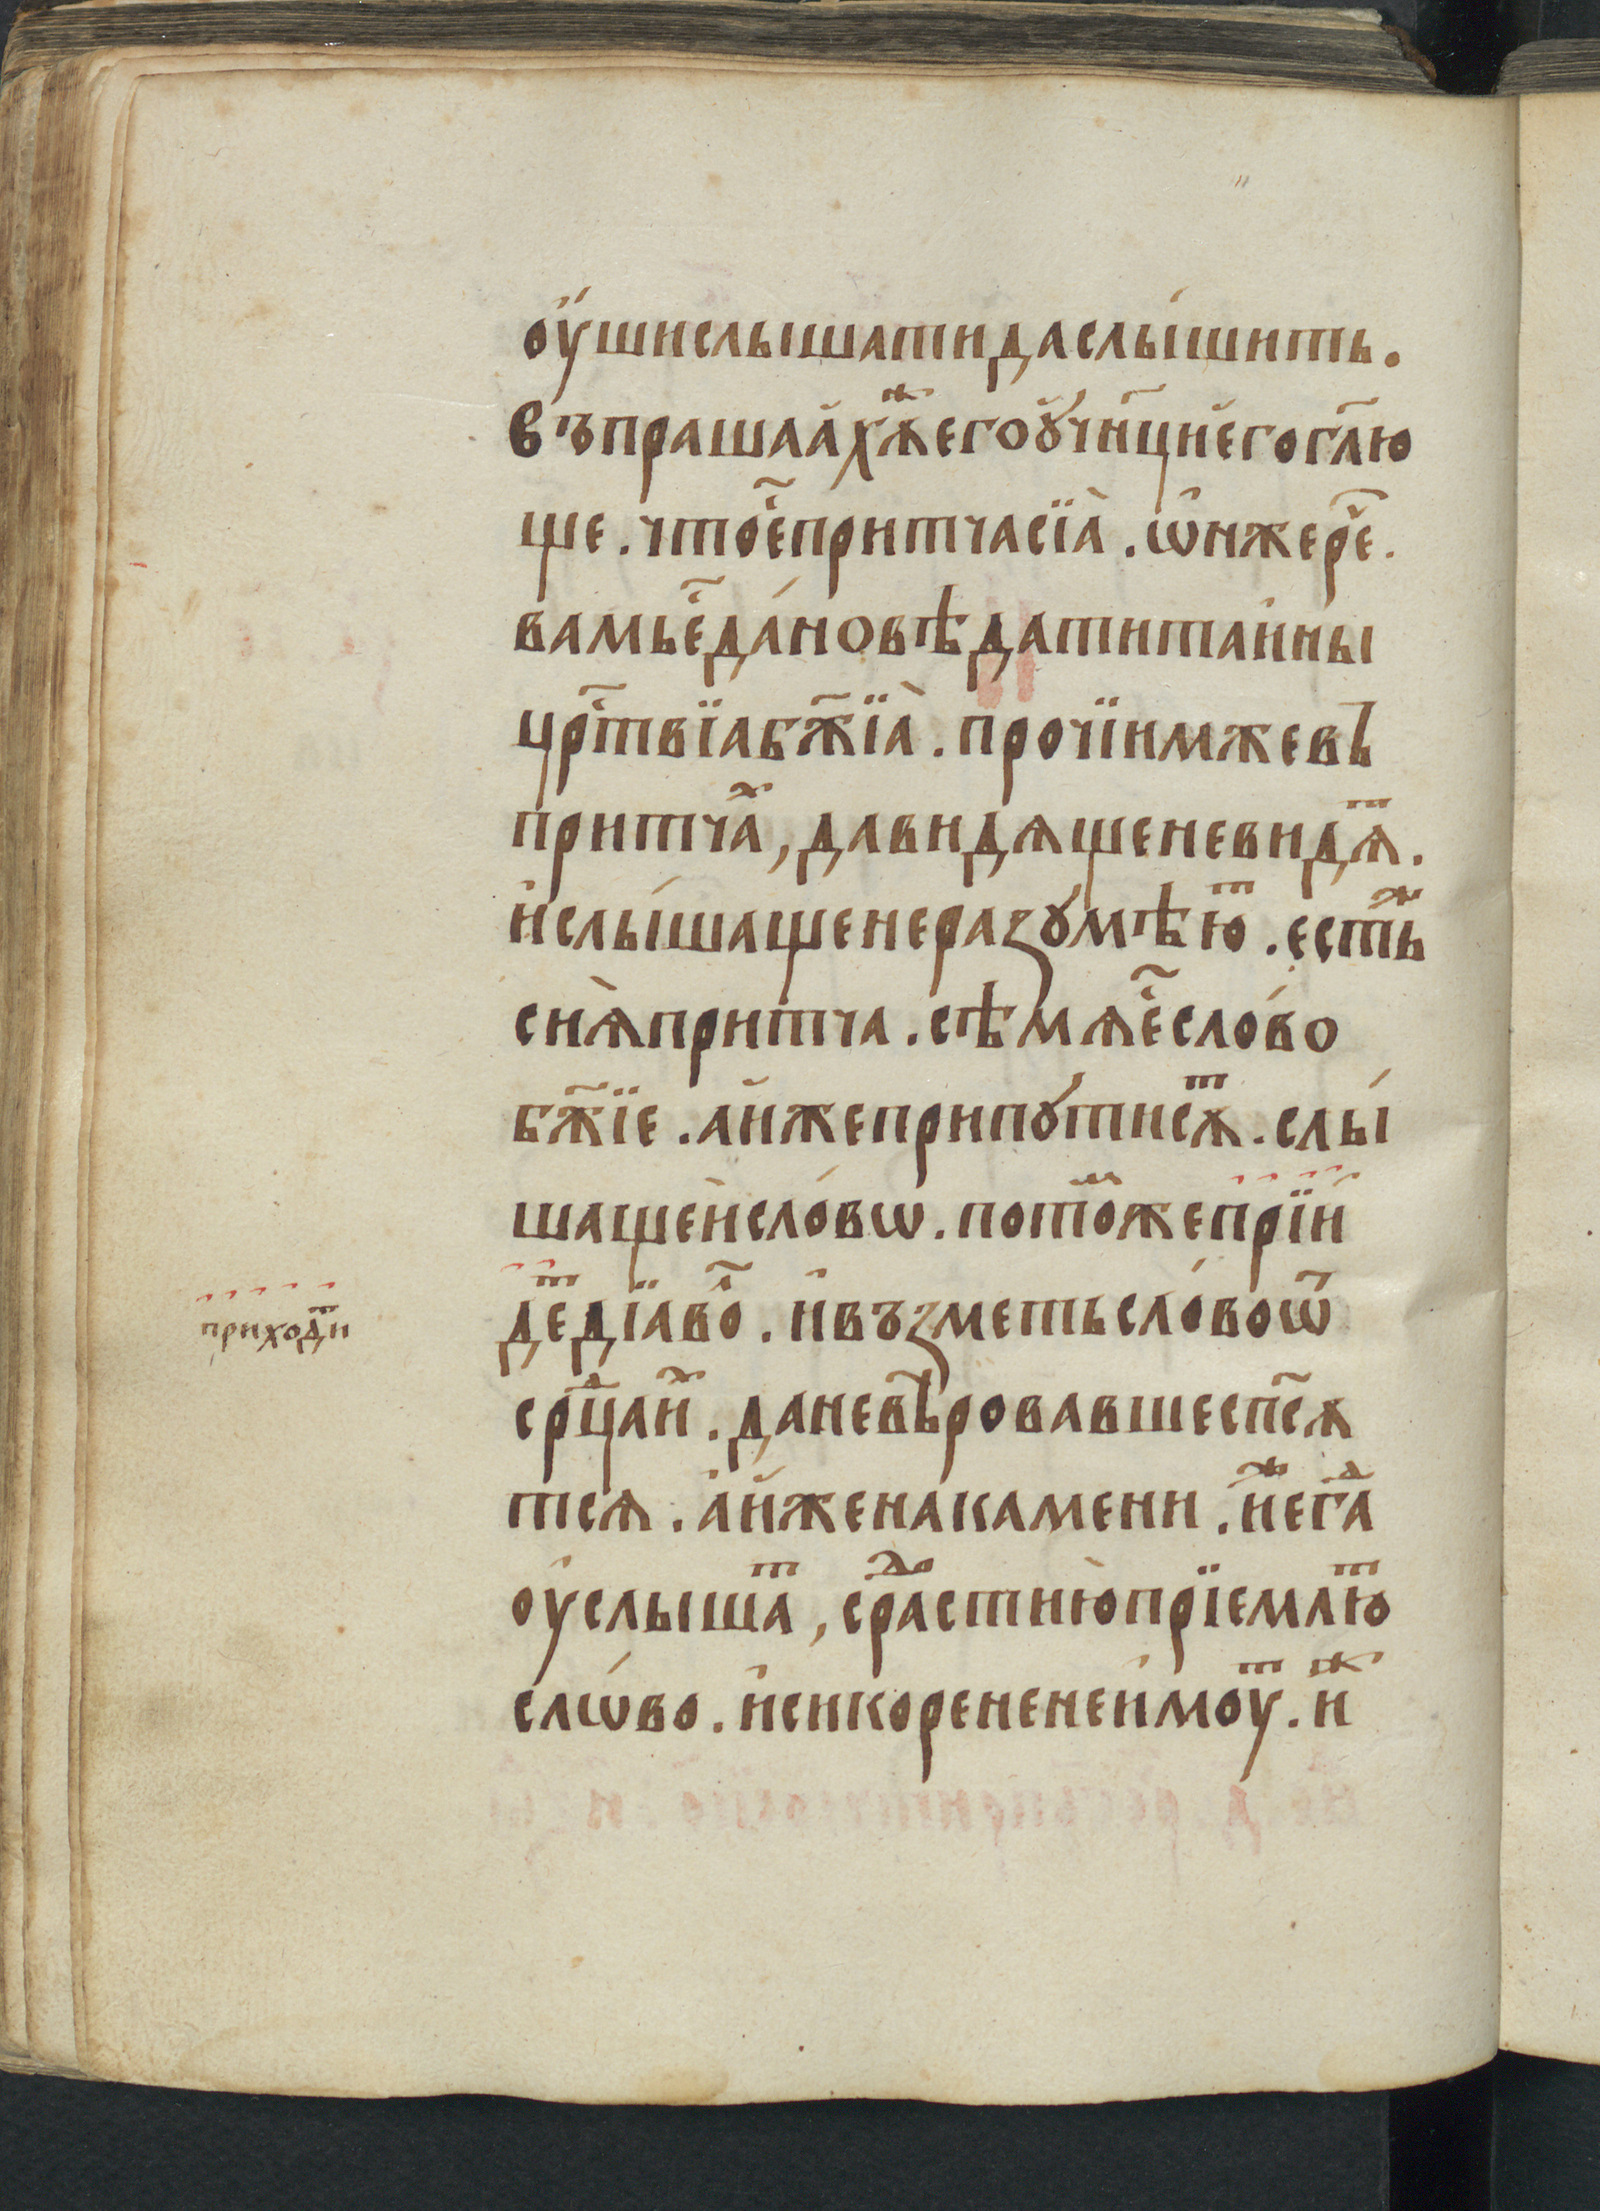 оу҆́шислышатидаслы́шить.
Въпрашаа҆хꙋⷤѧегоꙋ҆чн҃цие҆гогл҃ю
ще. чтое҆҃притчасїа̀. ѡ҆нжере҃ⷱ.
вамъе҆҃да́новѣдатитаи҆ны
црⷭ҇твїабж҃їа̀. прочїимжевъ
притчаⷯ, давидѧщеневидѧⷮ.
и҆слы́шащенеразꙋмѣюⷮ. естьⷤ
сиѧ̀притча. сѣмѧе҆҃сло́во
бж҃їе. аи҆жеприпꙋ́тисѧⷮ. слы́
шащеи҆сло́вѡ. потоⷨжеприї́и
деⷮдїавоⷧ҇. и҆възметьсло́воѿ
срⷣцаиⷯ. даневѣровавшеспⷭ҇ѧ
тсѧ. аи҆женакамени. и҆̀жеегаⷣ
оу҆слышаⷮ, срⷣастию̀прїемлюⷮ
слѡ́во. и҆сикоренене́и҆моуⷮ. иⷤ
приходѧⷮи